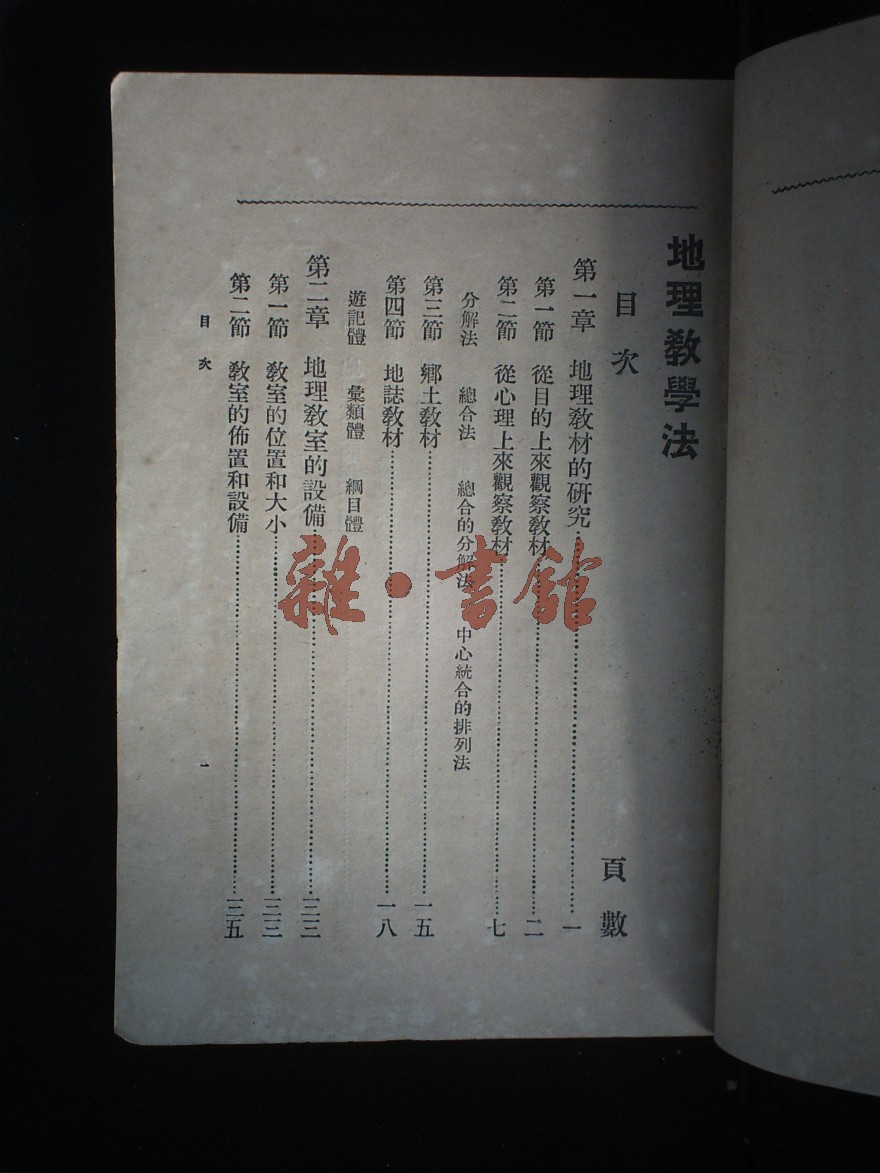 地理教學法
目次
頁數
第一章 地理教材的研究……一
第一節 從目的上來觀察教材……二
第二節 從心理上來觀察教材……七
分解法 總合法 總合的分解法 中心統合的排列法
第三節 鄉土教材……一五
第四節 地誌教材……一八
遊記體 彙類體 綱目體
第二章 地理教室的設備……三三
第一節 教室的位置和大小……三三
第二節 教室的佈置和設備……三五
目次
一
雜·書館